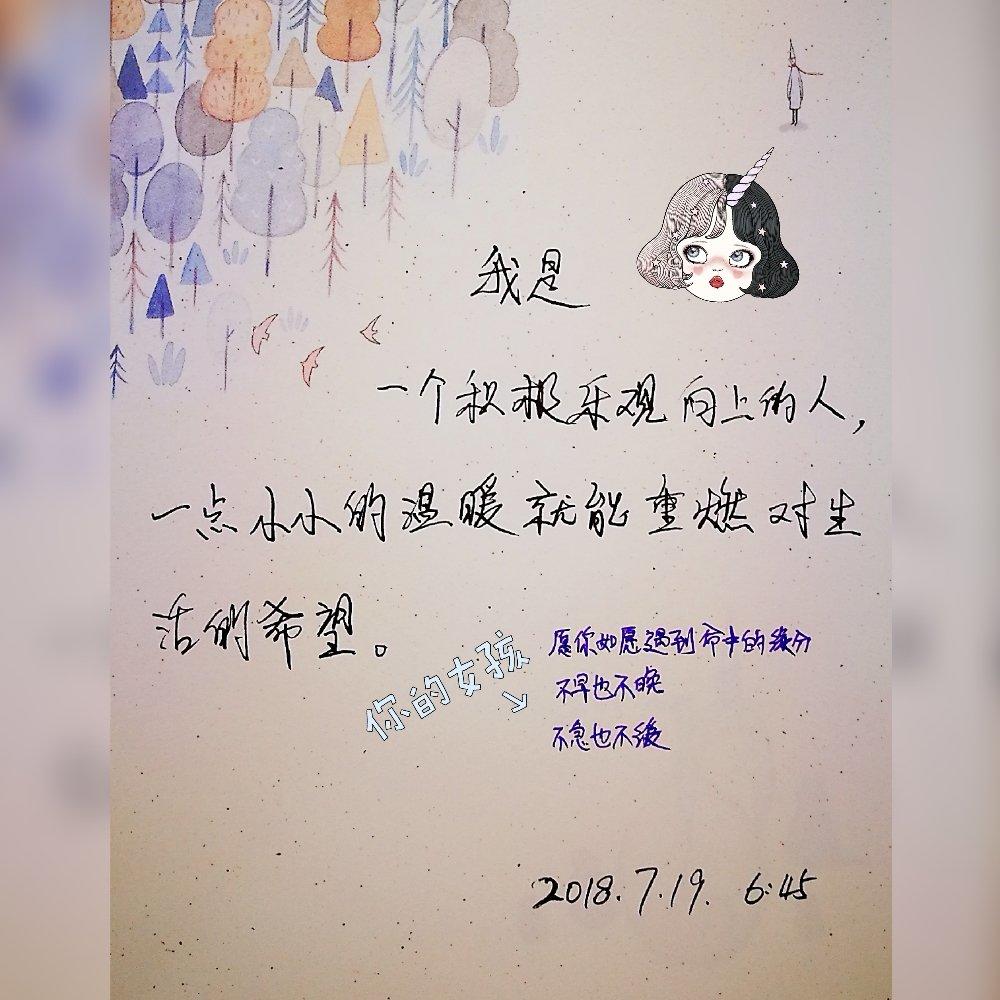 我是
一个积极乐观向上的人，
一点小小的温暖就能重燃对生
活的希望。
你的女孩
愿你如愿遇到命中的缘分
不早也不晚
不急也不缓
2018.7.19. 6:45